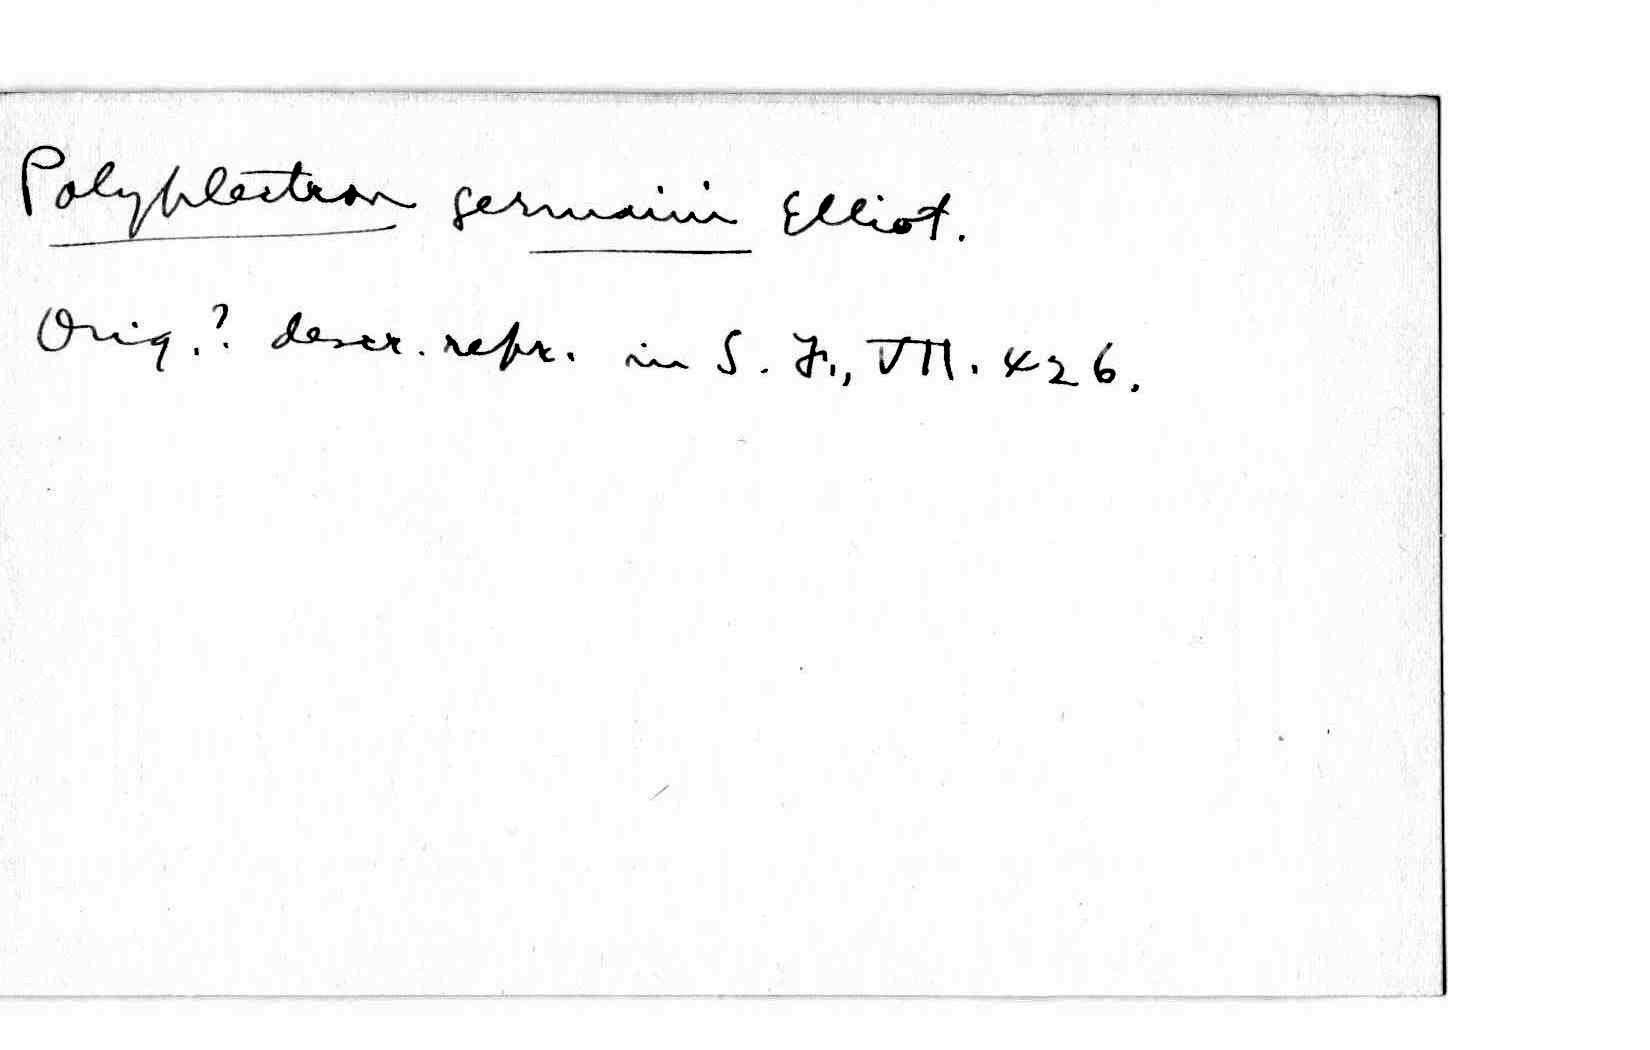 Polyplectron germaini Elliot.
Orig.? descr. repr. in S. F., VII. 426.